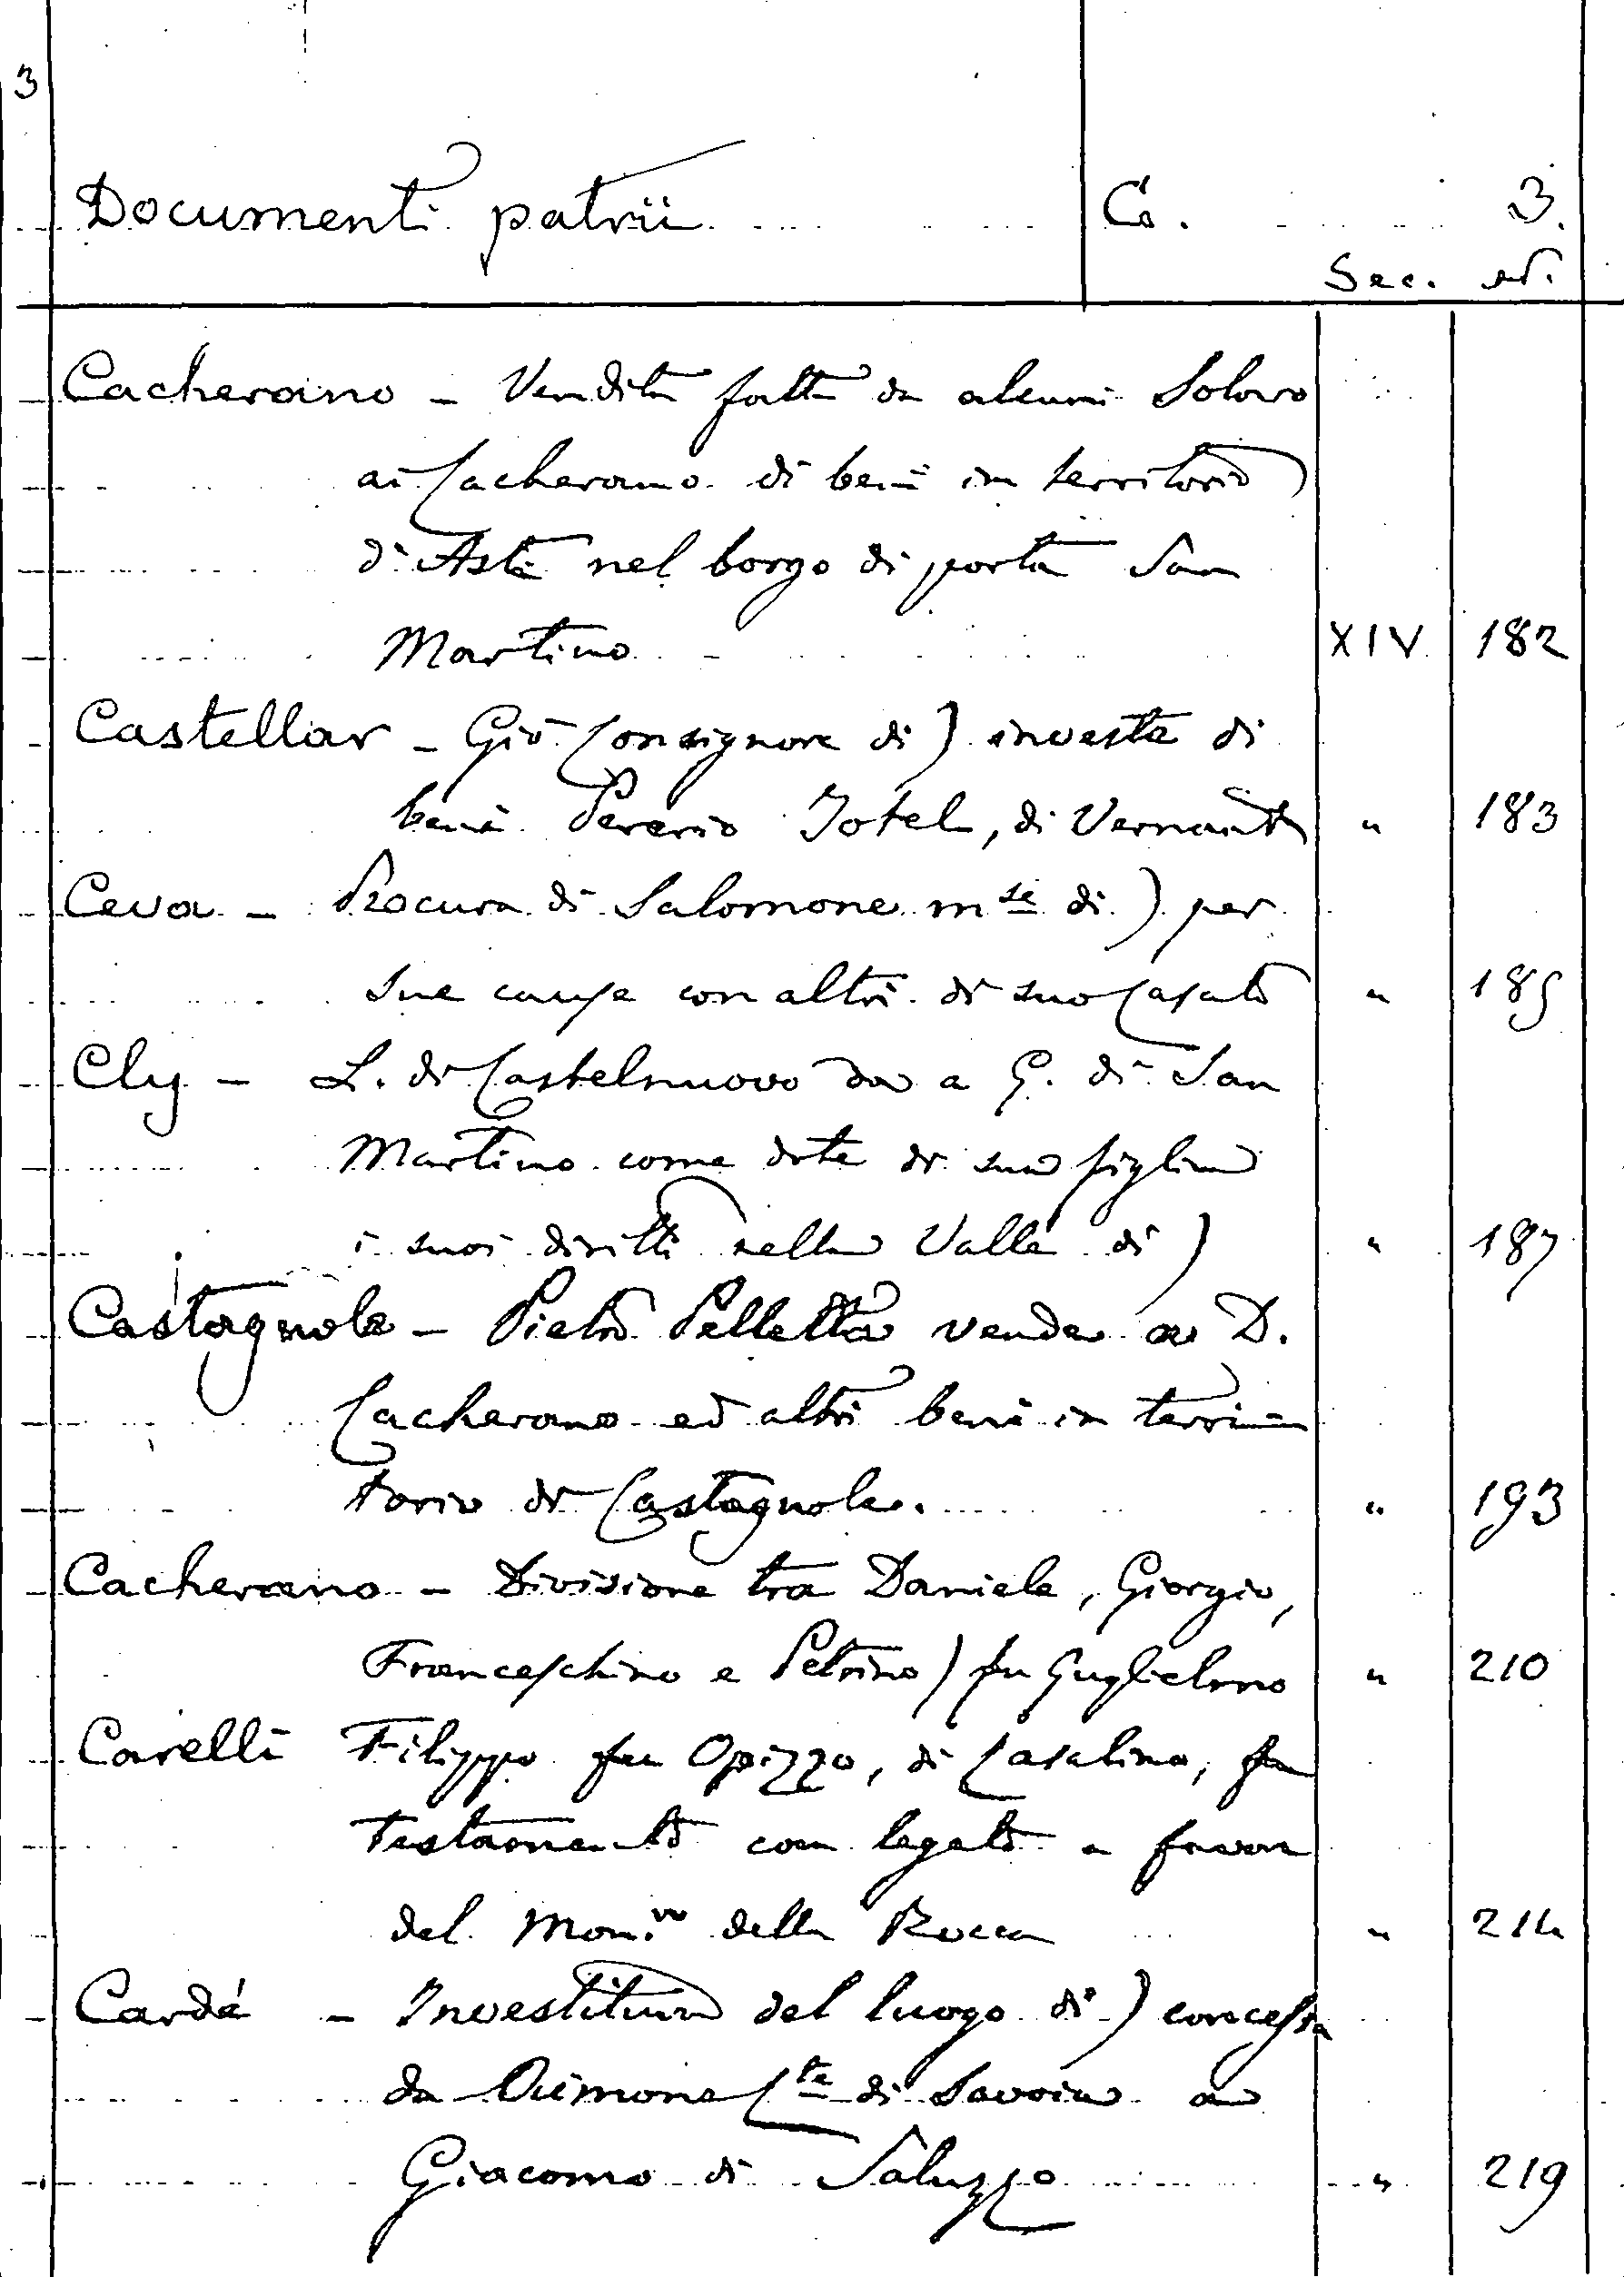 3
Documenti patrii Ca. 3.
Sec. N.
Cacherano - Vendita fatta da alcuni Solaro
ai Cacherano di beni in territorio
di Asti nel borgo di porta San
Martino XIV 182
Castellar - Gio Consignore di) investe di
beni Pererio Jotel, di Vernante " 183
Ceva - Procura di Salomone m.se di) per
sue cause con altri di suo Casato " 185
Cly - L. di Castelnuovo da a G. di San
Martino come dote di sua figlia
i suoi diritti nella Valle di) " 187
Castagnole - Pietro Pelletta vende a D.
Cacherano ed altri beni in terri=
torio di Castagnole. " 193
Cacherano - Divisione tra Daniele, Giorgio,
Franceschino e Petrino) fu Guglielmo " 210
Cavelli Filippo fu Opizzo, di Casalino, fa
Testamento con legato a favore
del Mon.ro della Rocca " 214
Cardé - Investitura del luogo di) concessa
da Aimone C.te di Savoia a
Giacomo di Saluzzo " 219